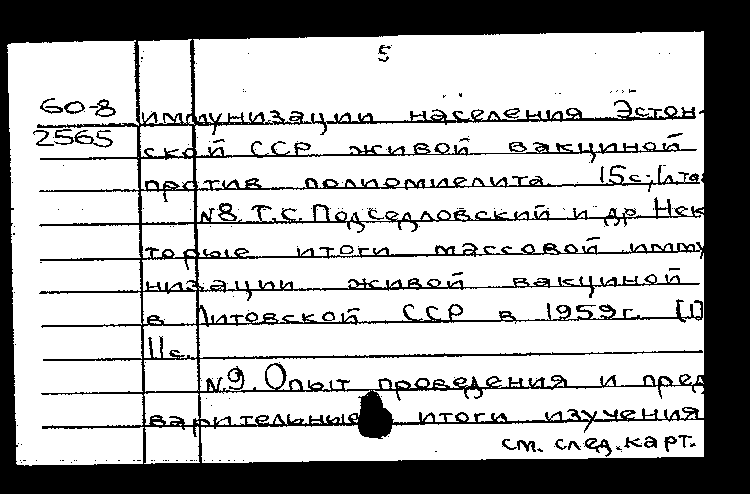 5
60-8
2565
иммунизации населения Эстон-
ской ССР живой вакциной
против полиомиелита. 15с.; 1л.таб
№8. Т.С. Подседловский и др. Нек
торые итоги массовой имму
низации живой вакциной
в Литовской ССР в 1959г. [1]
11с.
№9. Опыт проведения и пред
варительные итоги изучения
см. след. карт.